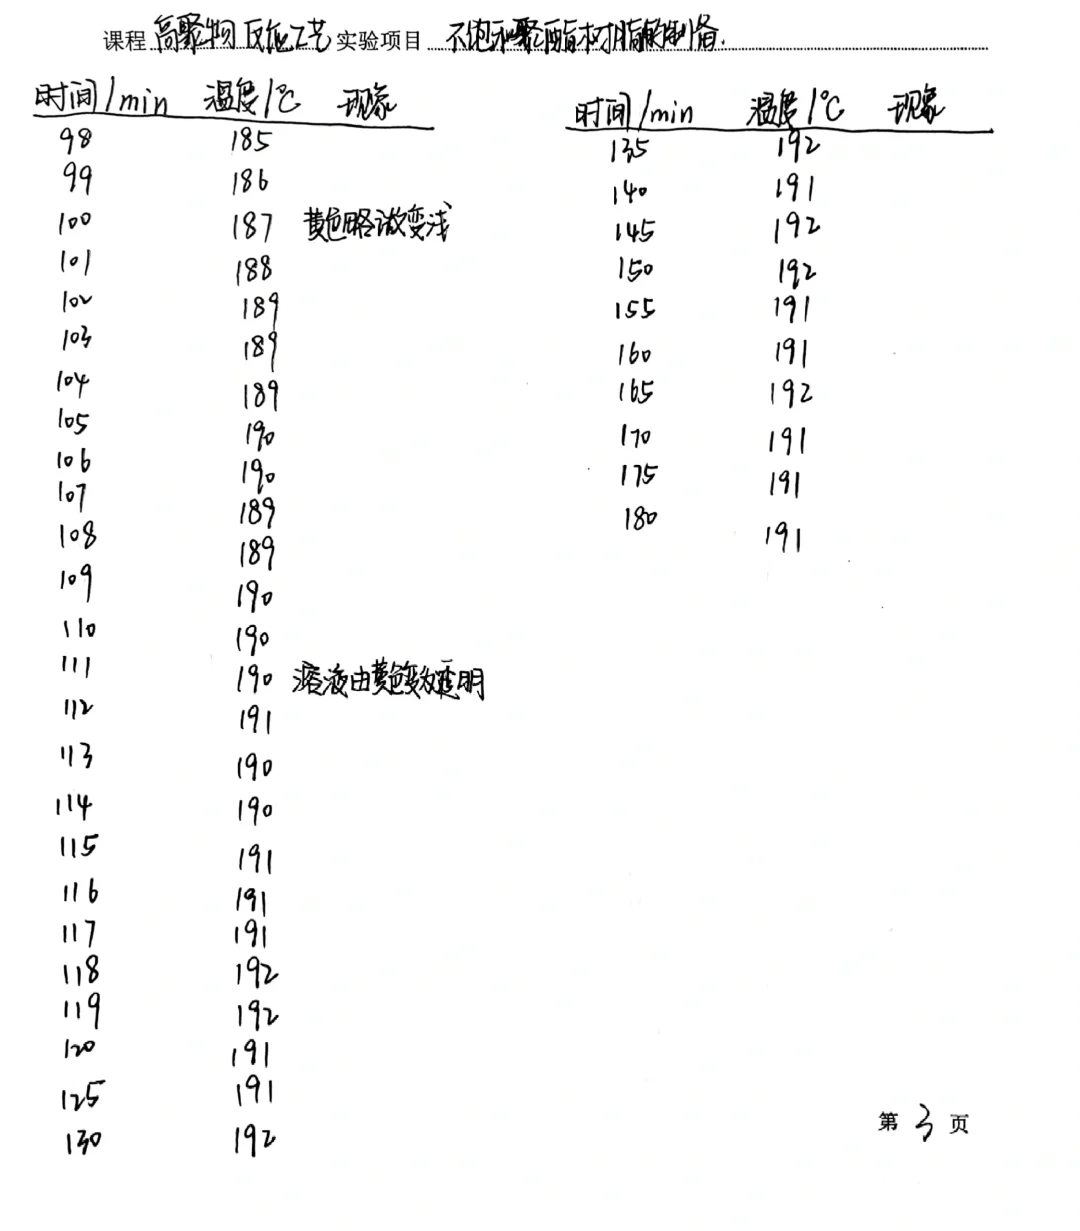 课程 高聚物反应工艺 实验项目 不饱和聚酯树脂的制备.
时间/min 温度/℃ 现象
98 185
99 186
100 187 黄色略微变浅
101 188
102 189
103 189
104 189
105 190
106 190
107 189
108 189
109 190
110 190
111 190 溶液由黄色变为透明
112 191
113 190
114 190
115 191
116 191
117 191
118 192
119 192
120 191
125 191
130 192
时间/min 温度/℃ 现象
135 192
140 191
145 192
150 192
155 191
160 191
165 192
170 191
175 191
180 191
第 3 页